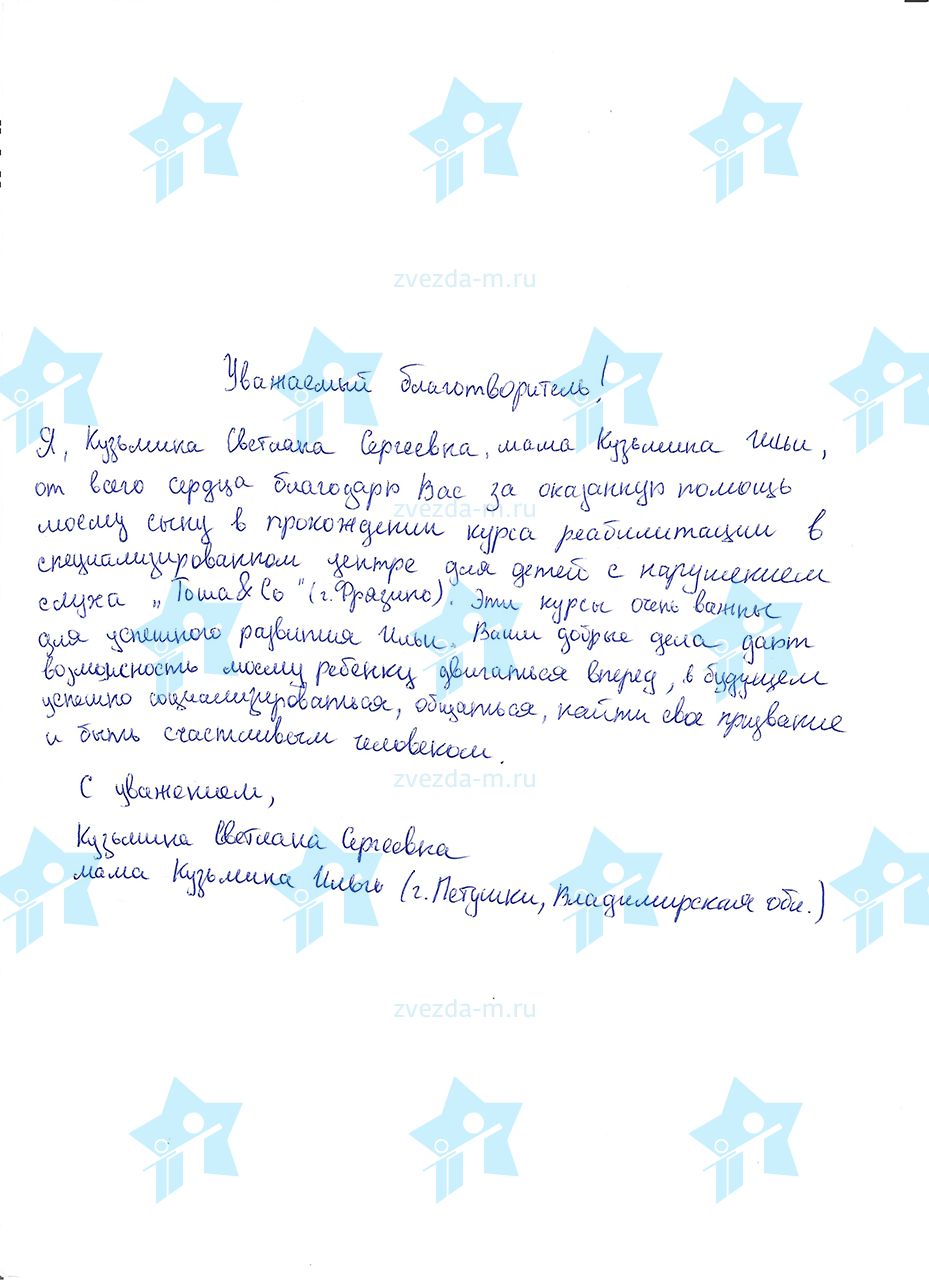 zvezda-m.ru
Уважаемый благотворитель!
Я, Кузьмина Светлана Сергеевна, мама Кузьмина Ильи,
от всего сердца благодарю Вас за оказанную помощь
zvezda-m.ru
моему сыну в прохождении курса реабилитации в
специализированном центре для детей с нарушением
слуха „Тоша&Со" (г. Фрязино). Эти курсы очень важны
для успешного развития Ильи. Ваши добрые дела дают
возможность моему ребенку двигаться вперед, в будущем
успешно социализироваться, общаться, найти свое призвание
и быть счастливым человеком.
zvezda-m.ru
С уважением,
Кузьмина Светлана Сергеевна
мама Кузьмина Ильи (г. Петушки, Владимирская обл.)
zvezda-m.ru